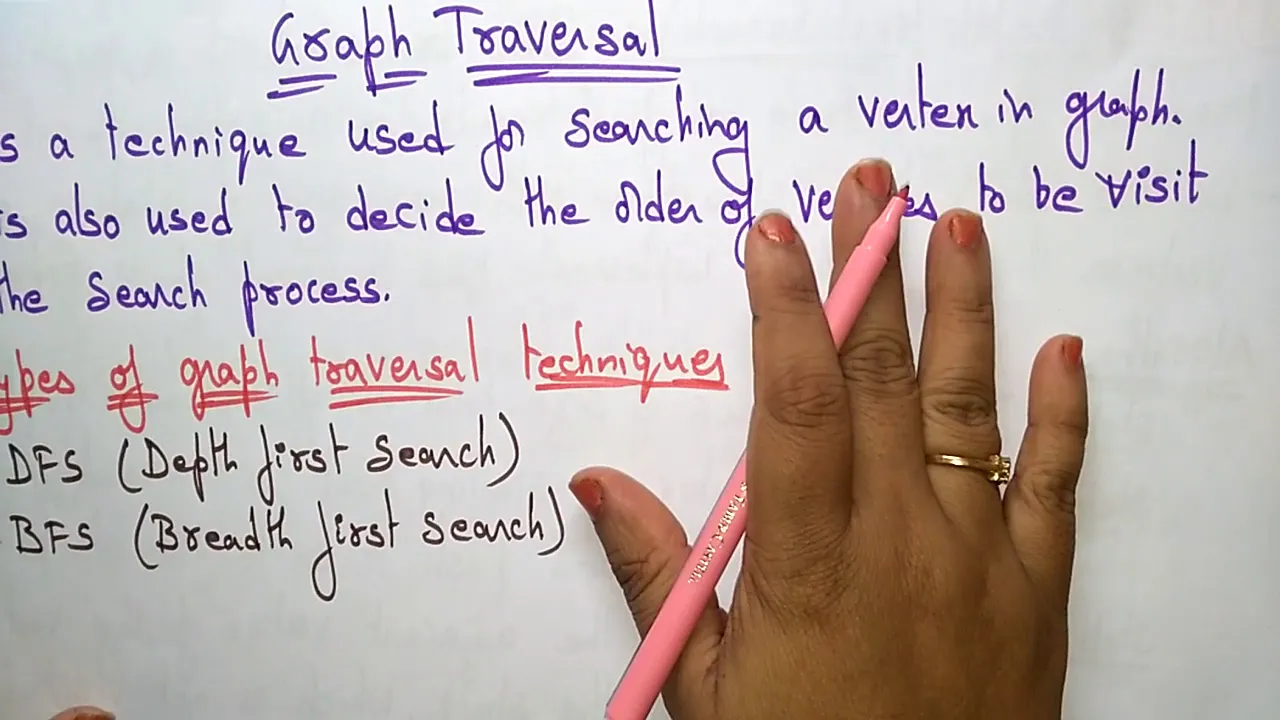 Graph Traversal
s a technique used for searching a vertex in graph.
is also used to decide the order of ve es to be visit
the search process.
ypes of graph traversal techniques
DFS (Depth first search)
BFS (Breadth first search)